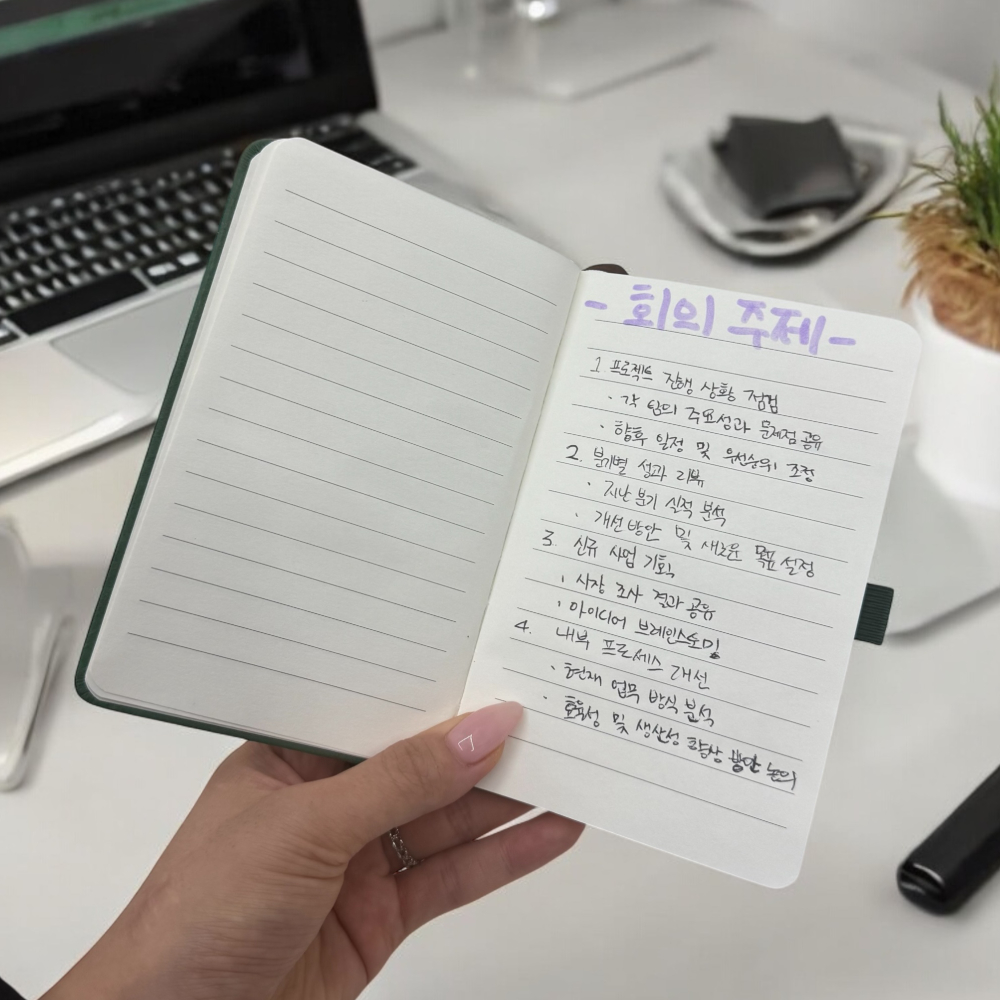 - 회의 주제 -
1 프로젝트 진행 상황 점검
· 각 팀의 주요성과 문제점 공유
· 향후 일정 및 우선순위 조정
2. 분기별 성과 리뷰
· 지난 분기 실적 분석
· 개선 방안 및 새로운 목표 설정
3. 신규 사업 기획
· 시장 조사 결과 공유
· 아이디어 브레인스토밍
4. 내부 프로세스 개선
· 현재 업무 방식 분석
· 효율성 및 생산성 향상 방안 논의